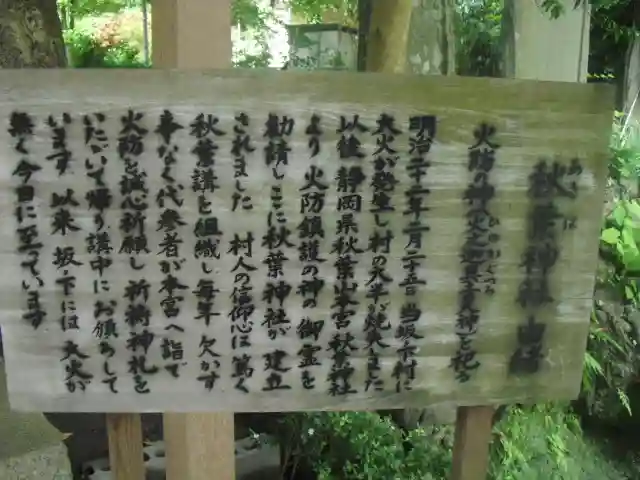 秋葉神社由緒
あきは
火防の神(火之迦具土神)を祀る
ひのかぐつち
明治二十二年二月二十五日 当坂下村に
大火が発生し村の大半が焼失しました
以後 静岡県秋葉山本宮秋葉神社
より 火防鎮護の神の 御霊を
勧請しここに秋葉神社が 建立
されました 村人の信仰心は篤く
秋葉講を組織し毎年 欠かす
事なく代参者が本宮へ詣で
火防を誠心祈願し 祈祷神札を
いただいて帰り講中に お頒ちして
います 以来 坂下には 大火が
無く今日に至っています